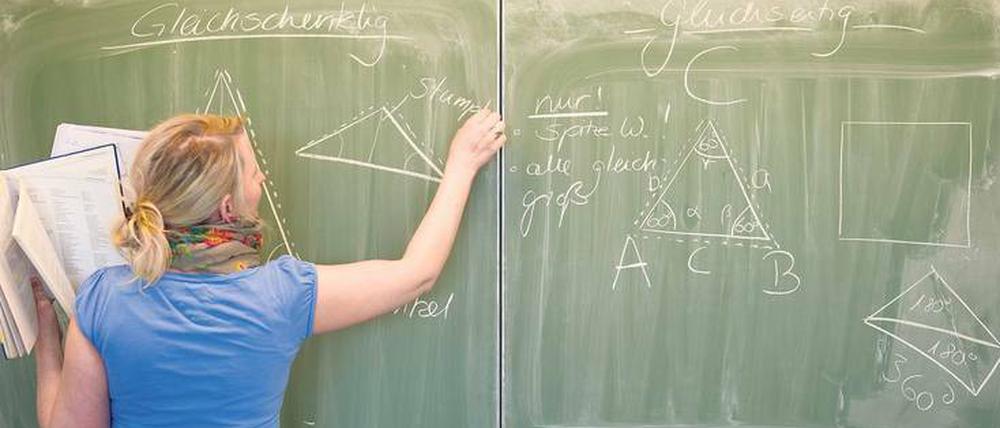 Gleichschenklig
Stump
Gleichseitig
C
nur!
• spitze W. !
• alle gleich
groß
60°
γ
b
a
60°
α
β
60°
A
c
B
180°
180°
360°